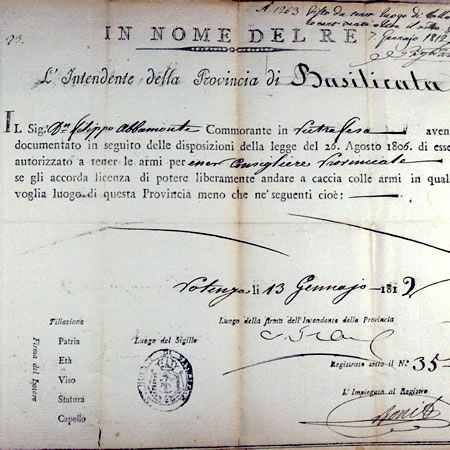 A. 1263
7. Gennajo 1812
23.
IN NOME DEL RE
L'Intendente della Provincia di Basilicata
IL Sig. Dn. Filippo Abbamonte Commorante in Pietrafesa aven
documentato in seguito delle disposizioni della legge del 26. Agosto 1806. di esse
autorizzato a tener le armi per esser Consigliere Provinciale
se gli accorda licenza di potere liberamente andare a caccia colle armi in qual
voglia luogo di questa Provincia meno che ne' seguenti cioè:
Potenza li 13 Gennajo 1812
Filiazione
Luogo della firma dell'Intendente della Provincia
Firma del Latore
Patria
Luogo del Sigillo
Età
Viso
Registrato sotto il N.° 35
Statura
Capello
L'Impiegato al Registro